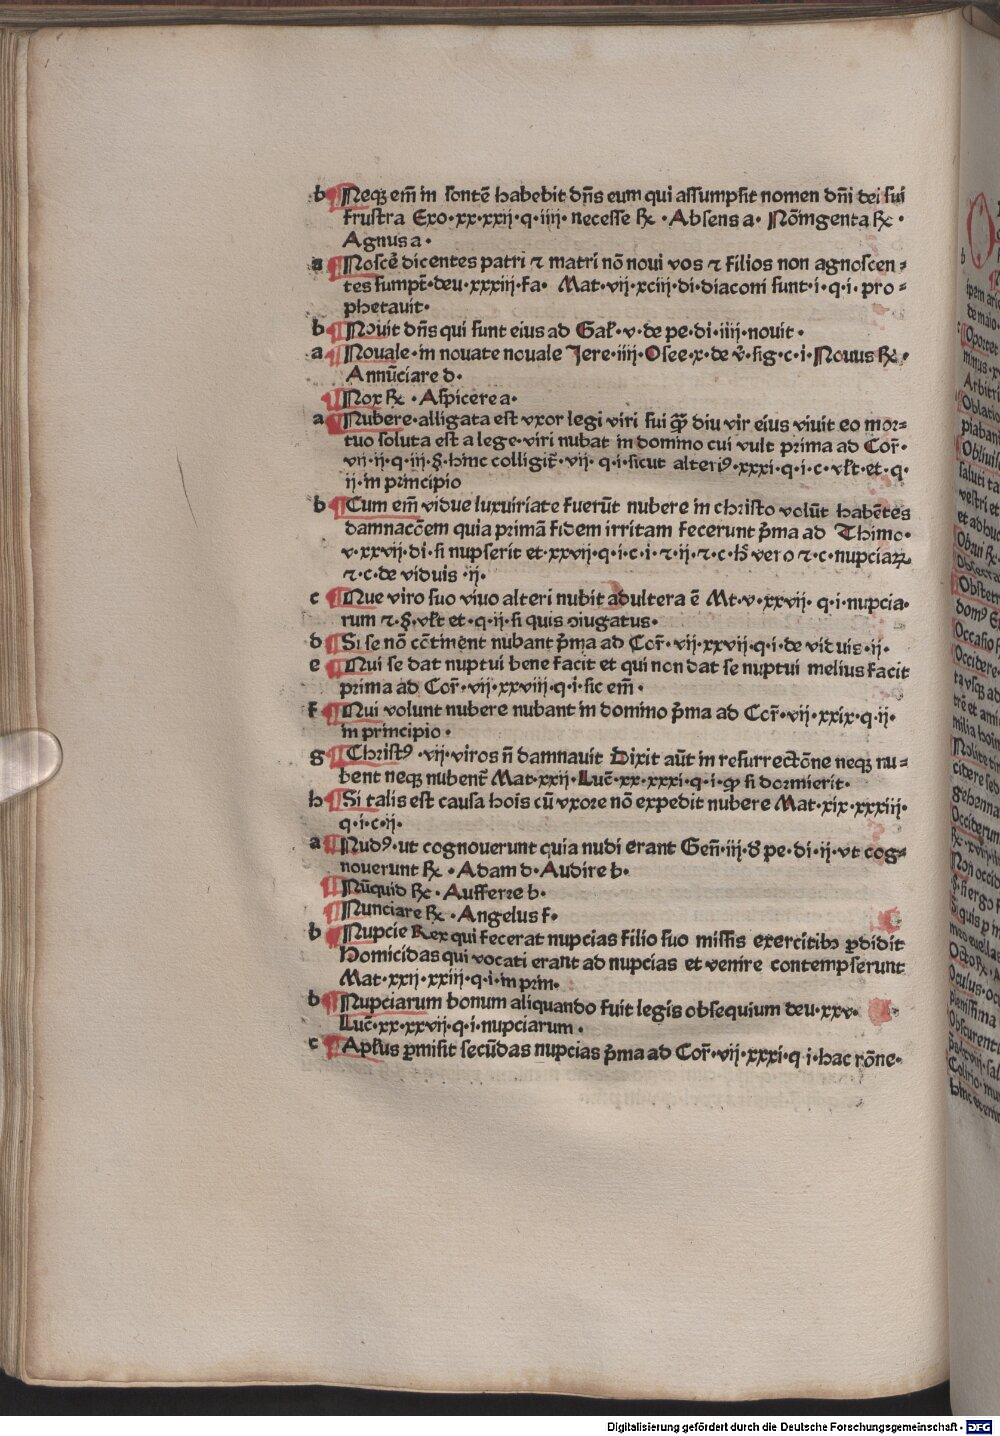 b ¶ Neqꝫ em̄ in sontē habebit dn̄s eum qui assumpsit nomen dn̄i dei sui
frustra Exo·xx·xxij·q·iiij· necesse ℞ ·Absens a· Nōmgenta ℞ ·
Agnus a·
a ¶ Noscē dicentes patri ⁊ matri nō noui vos ⁊ filios non agnoscen⸗
tes sumpt̄·deu·xxxiij·fa· Mat·vij·xciij·di·diaconi sunt·i·q·i· pro⸗
phetauit·
b ¶ Nouit dn̄s qui sunt eius ad Gal̄·v·de pe·di·iiij·nouit·
a ¶ Nouale·in nouate nouale Jere·iiij·Osee·x·de v̄·sig·c·i·Nouus ℞·
Annūciare d·
¶ Nox ℞ ·Aspicere a·
a ¶ Nubere·alligata est vxor legi viri sui qȝ̄ diu vir eius viuit eo mor⸗
tuo soluta est a lege·viri nubat in domino cui vult prima ad Cor̄·
vii·ij·q·iij·§·hinc colligit̄·vij· q·i·sicut alteriꝰ·xxxi·q·i·c·vl̄t·et·q·
ij·in principio
b ¶ Cum em̄ vidue luxuriate fuerūt nubere in christo volūt habētes
damnaccōem quia primā fidem irritam fecerunt p̄ma ad Thimo·
v·xxvij·di·si nupserit et·xxvij·q·i·c·i·⁊·ij·⁊·c·h̄ vero ⁊·c·nupciaꝝ
⁊·c·de viduis·ij·
c ¶ Que viro suo viuo alteri nubit adultera ē Mt·v·xxvij· q·i·nupcia·
rum ⁊·§·vl̄t et·q·ij·si quis ↄiugatus·
d ¶ Si se nō cōtinent nubant p̄ma ad Cor̄·vij·xxvij·q·i·de viduis·ij·
e ¶ Qui se dat nuptui bene facit et qui non dat se nuptui melius facit
prima ad Cor̄·vij·xxviij·q·i·sic em̄·
f ¶ Qui volunt nubere nubant in domino p̄ma ad Cor̄·vij·xxix·q·ij·
in principio·
g ¶ Christꝰ ·vij·viros n̄ damnauit Dixit aūt in resurrectōne neqꝫ nu⸗
bent neqꝫ nubent̄ Mat·xxij·Luc̄·xx·xxxi·q·i·ꝙ si dormierit·
h ¶ Si talis est causa hois cū vxore nō expedit nubere Mat·xix·xxxiij·
q·i·c·ij·
a ¶ Nudꝰ·ut cognouerunt quia nudi erant Gen̄·iij·δ pe·di·ij·vt cog⸗
nouerunt ℞ ·Adam d·Audire b·
¶ Nūquid ℞ ·Aufferre b·
¶ Nunciare ℞ ·Angelus f·
b ¶ Nupcie Rex qui fecerat nupcias filio suo missis exercitibꝫ ꝑdidit
homicidas qui vocati erant ad nupcias et venire contempserunt
Mat·xxij·xxiij·q·i·in prin·
b ¶ Nupciarum bonum aliquando fuit legis obsequium deu·xxv·
Luc̄·xx·xxvij·q·i·nupciarum·
c ¶ Apl̄us ꝑmisit secūdas nupcias p̄ma ad Cor̄·vij·xxxi·q·i·hac rōne·
b
ipem
de maio
Oportet
minus
Arbitri
Oblatio
piabant
Obliuis
saluti ta
vestri et
et adhuc
Obstetr
domꝰ
Occasio
Occidere
ta vsqꝫ ad
trē et ami
milia
Nolite tim
cidere sed
gehenna
Occiderunt
Non occid
si ergo
Si quis p
Octo ℞ · A
Oculus·oc
plenissima
Obscurent
Colirio·
hinc et
Digitalisierung gefördert durch die Deutsche Forschungsgemeinschaft - DFG